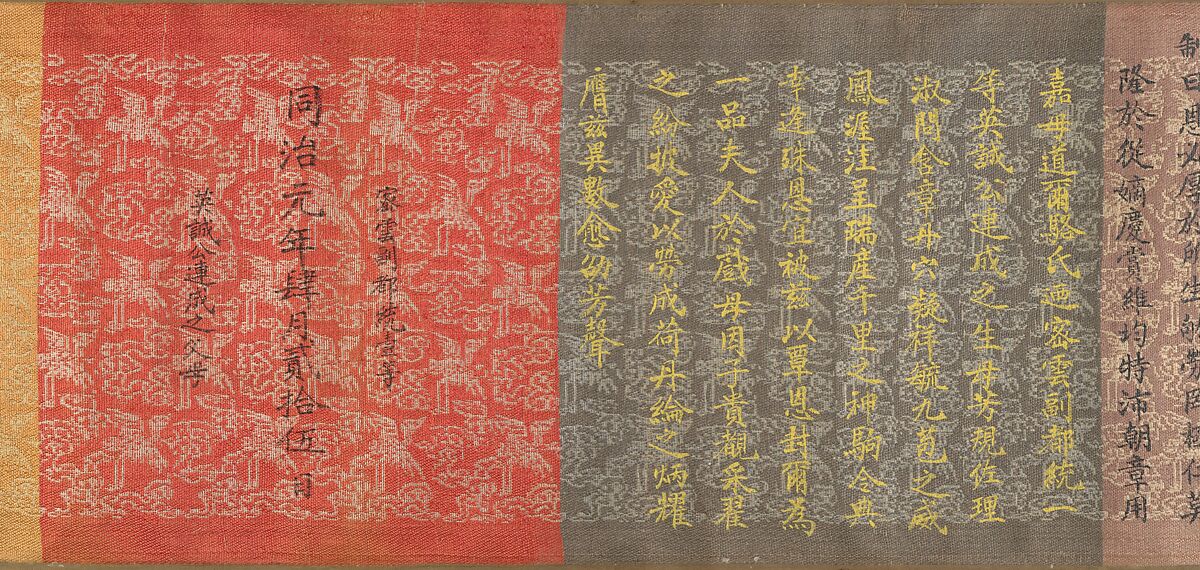 制曰恩必厚於所生敬勞
隆於從嫡慶賞維均特沛朝章用
嘉母道爾駱氏迺密雲副都統一
等英誠公連成之生母芳規佐理
淑問含章丹穴凝祥毓九苞之威
鳳渥洼呈瑞產千里之神駒令典
幸逢殊恩宜被兹以覃恩封爾為
一品夫人於戲母因子貴覩采翟
之紛披愛以勞成荷丹綸之炳耀
膺兹異數愈劭芳聲
密雲副都統壹等
同治元年肆月貳拾伍日
英誠公連成之父母